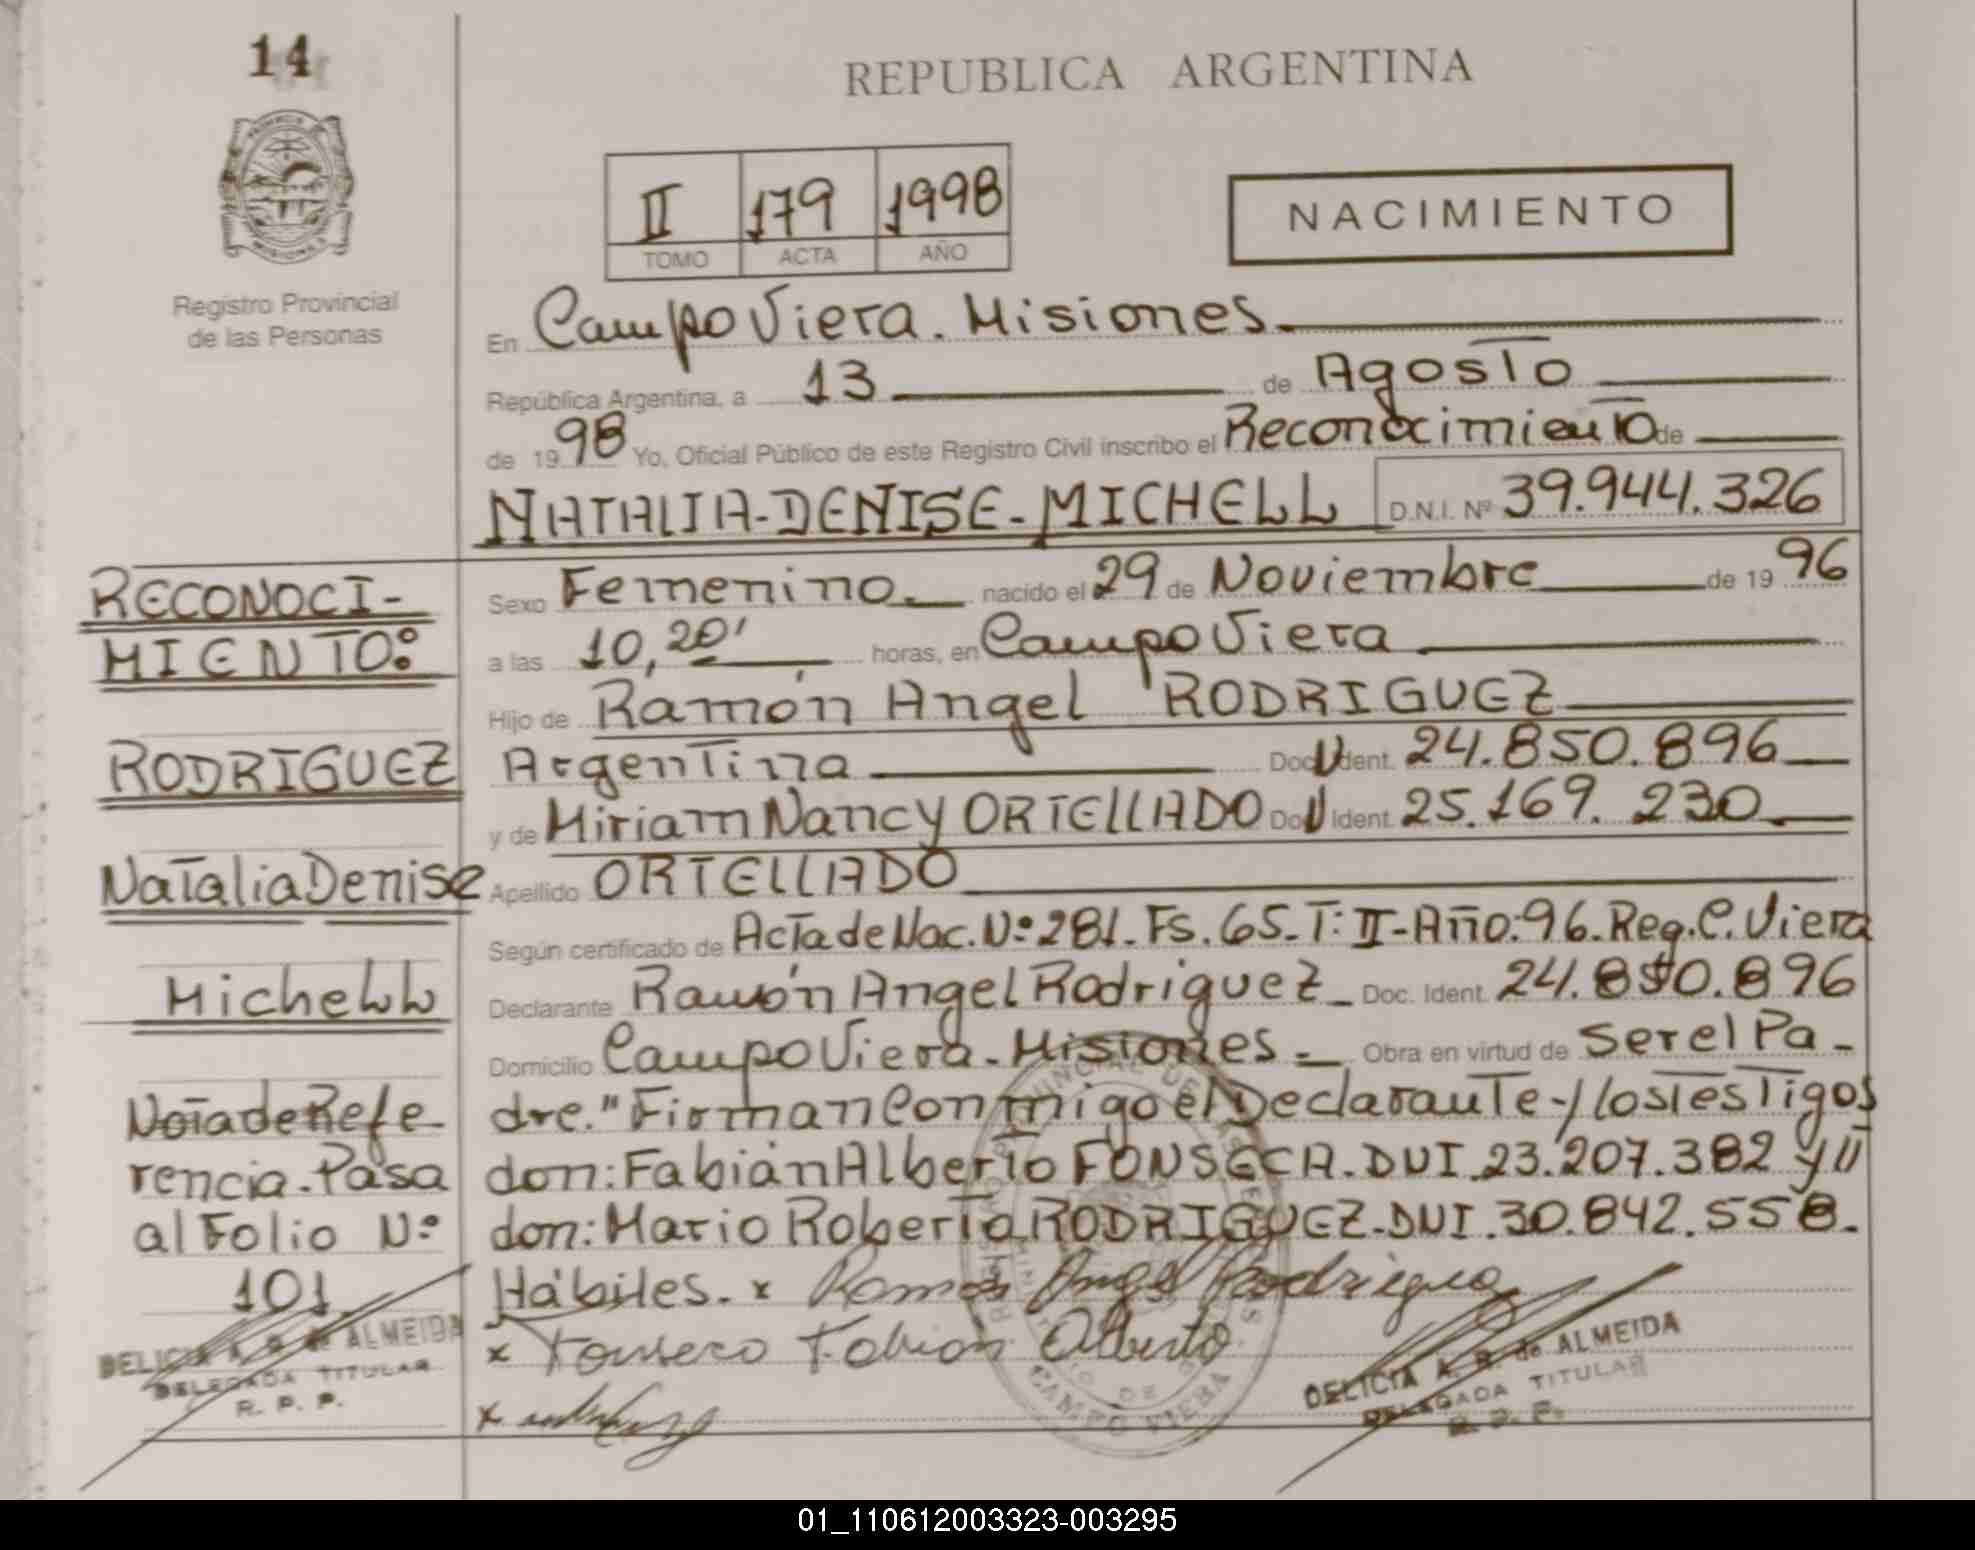 14
REPUBLICA ARGENTINA
II 179 1998
TOMO ACTA AÑO
NACIMIENTO
PROVINCIA DE
MISIONES
Registro Provincial
de las Personas
En Campo Viera. Misiones.
República Argentina, a 13 de Agosto
de 1998 Yo, Oficial Público de este Registro Civil inscribo el Reconocimiento de
NATALIA-DENISE-MICHELL D.N.I. Nº 39.944.326
RECONOCI-
MIENTO:
RODRIGUEZ
Natalia Denise
Michell
Nota de Refe-
rencia. Pasa
al Folio Nº
101
DELICIA A. R. de ALMEIDA
DELEGADA TITULAR
R. P. P.
Sexo Femenino. nacido el 29 de Noviembre de 1996
a las 10,20' horas, en Campo Viera
Hijo de Ramón Angel RODRIGUEZ
Argentina Doc. Ident. 24.850.896
y de Miriam Nancy ORTELLADO Doc. Ident. 25.169.230
Apellido ORTELLADO
Según certificado de Acta de Nac. Nº 281. Fs. 65. T: II-Año: 96. Reg. C. Viera
Declarante Ramón Angel Rodriguez Doc. Ident. 24.850.896
Domicilio Campo Viera. Misiones Obra en virtud de ser el Pa-
dre." Firman Conmigo el Declarante y los Testigos
don: Fabián Alberto FONSECA. DNI. 23.207.382 y "
don: Mario Roberto RODRIGUEZ. DNI. 30.842.558.
Hábiles. x Ramon Angel Rodriguez
x Fonseca Fabian Alberto
x
CAMPO VIERA
DELICIA A. R. de ALMEIDA
DELEGADA TITULAR
R. P. P.
01_110612003323-003295